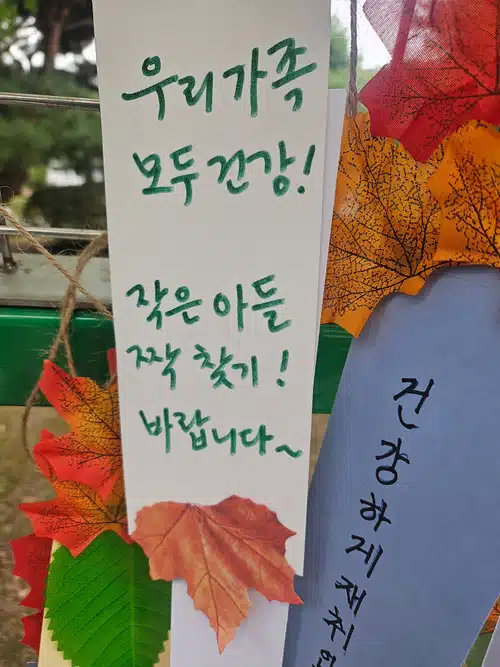 우리가족
모두 건강!
작은 아들
짝 찾기!
바랍니다~
건강하게 재취